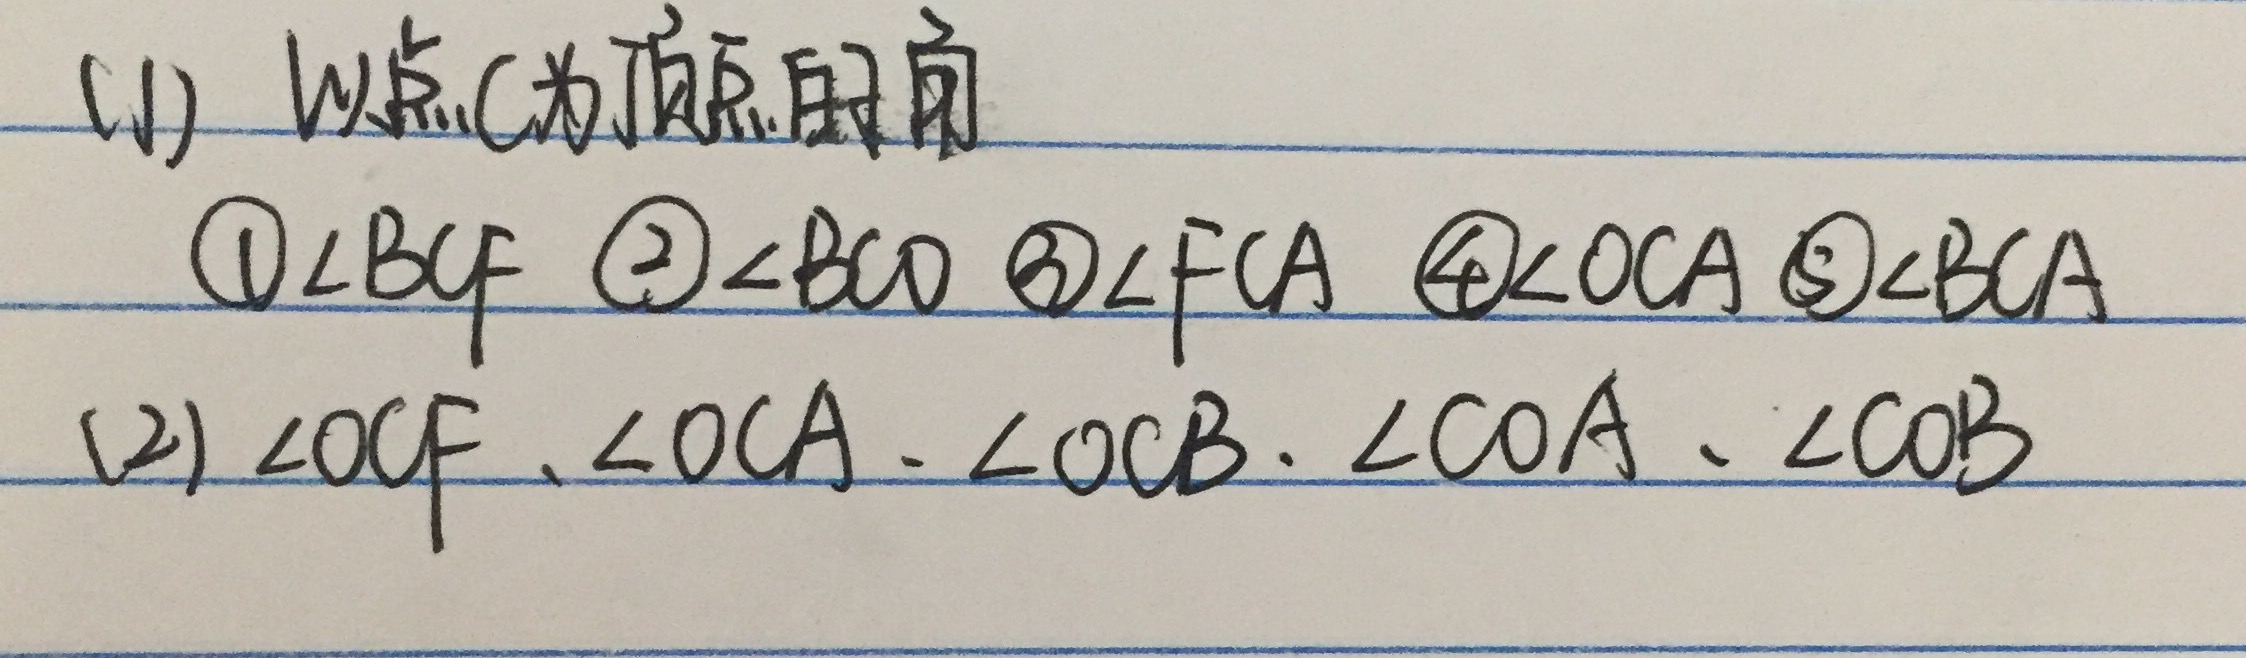 (1) 以点C为顶点的角
①∠BCF ②∠BCO ③∠FCA ④∠OCA ⑤∠BCA
(2) ∠OCF、∠OCA、∠OCB、∠COA、∠COB